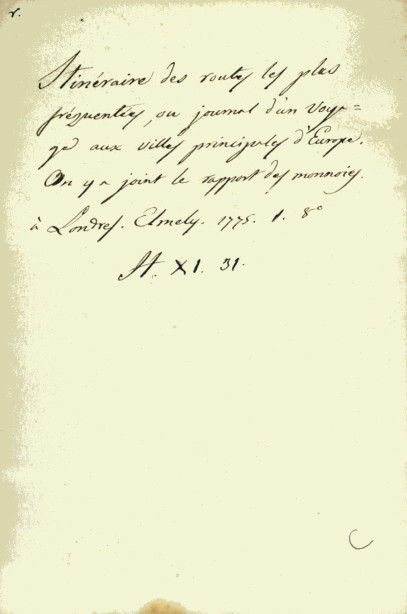 r.
Itinéraire des routes les plus
fréquentées, ou journal d'un voya=
ge aux villes principales d'Europe.
On y a joint le rapport des monnoies.
à Londres. Elmely. 1775. 1. 8°
H. XI. 31.
C